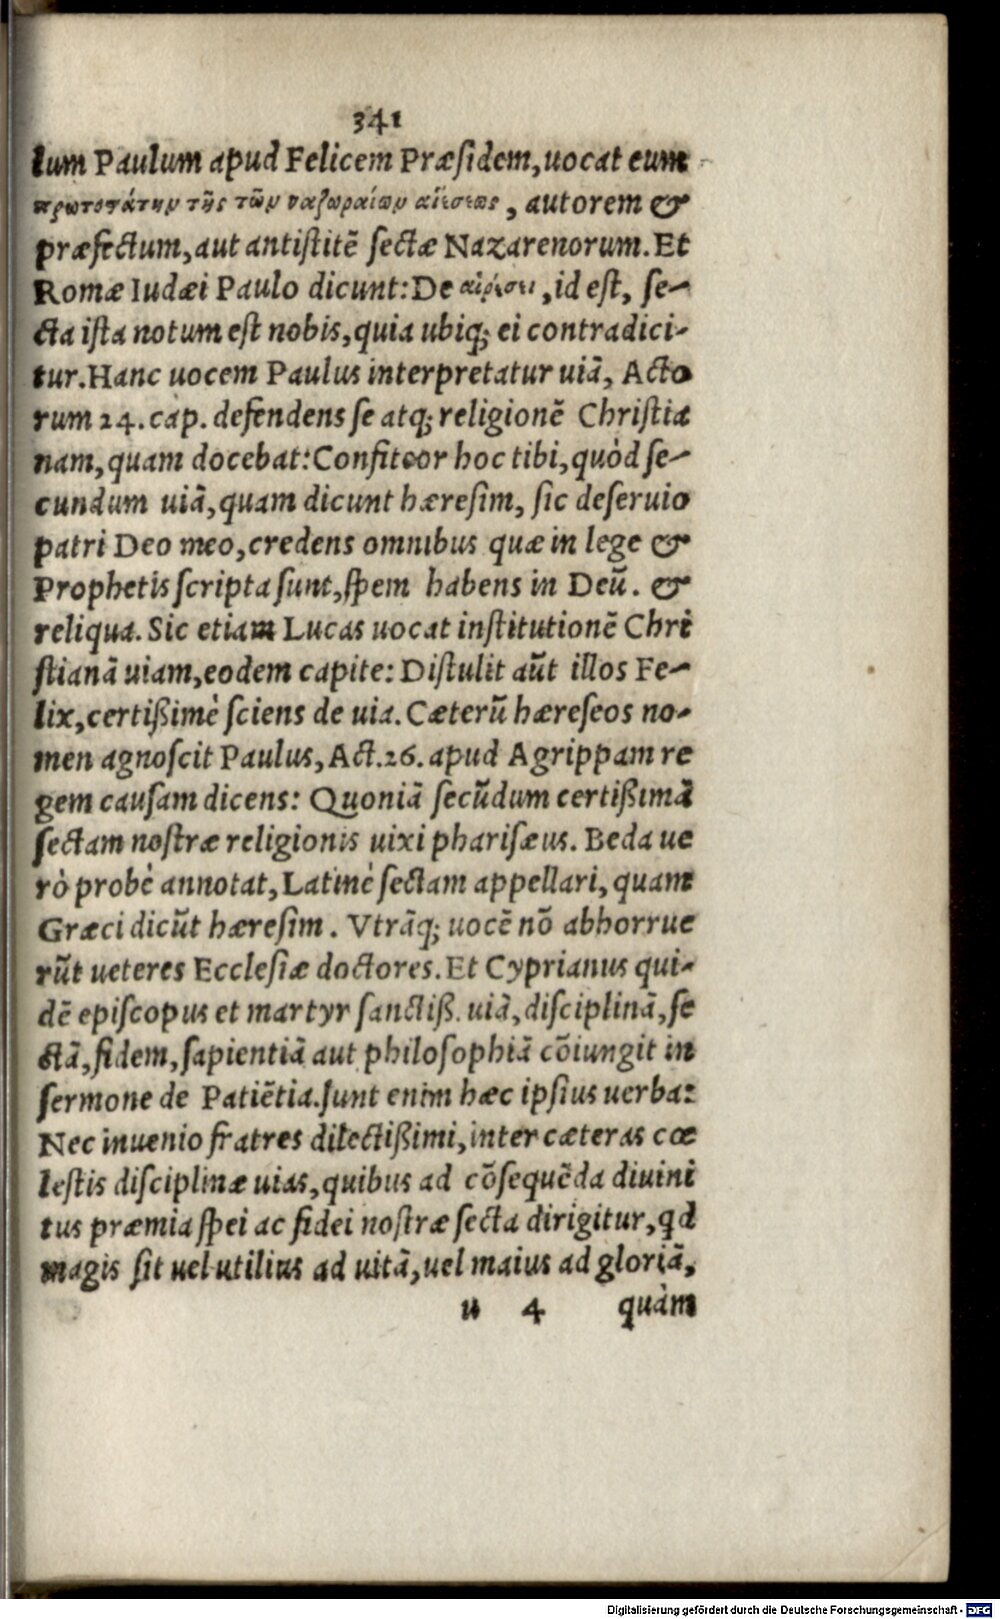 341
lum Paulum apud Felicem Præſidem, uocat eum
πρωτοστάτην τῆς τῶν ναζωραίων αἱρέσεως, autorem &
præfectum, aut antiſtitē ſectæ Nazarenorum. Et
Romæ Iudæi Paulo dicunt: De αἱρέσει, id eſt, ſe-
cta iſta notum eſt nobis, quia ubiq; ei contradici-
tur. Hanc uocem Paulus interpretatur uiā, Acto
rum 24. cap. defendens ſe atq; religionē Chriſtia
nam, quam docebat: Confiteor hoc tibi, quòd ſe-
cundum uiā, quam dicunt hæreſim, ſic deſeruio
patri Deo meo, credens omnibus quæ in lege &
Prophetis ſcripta ſunt, ſpem habens in Deū. &
reliqua. Sic etiam Lucas uocat inſtitutionē Chri
ſtianā uiam, eodem capite: Diſtulit aūt illos Fe-
lix, certißimè ſciens de uia. Cæterū hæreſeos no-
men agnoſcit Paulus, Act. 26. apud Agrippam re
gem cauſam dicens: Quoniā ſecūdum certißimā
ſectam noſtræ religionis uixi phariſæus. Beda ue
rò probè annotat, Latinè ſectam appellari, quam
Græci dicūt hæreſim. Vtrāq; uocē nō abhorrue
rūt ueteres Eccleſiæ doctores. Et Cyprianus qui-
dē epiſcopus et martyr ſanctiß. uiā, diſciplinā, ſe
ctā, fidem, ſapientiā aut philoſophiā cōiungit in
ſermone de Patiētia. ſunt enim hæc ipſius uerba:
Nec inuenio fratres dilectißimi, inter cæteras cœ
leſtis diſciplinæ uias, quibus ad cōſequēda diuini
tus præmia ſpei ac fidei noſtræ ſecta dirigitur, qd
magis ſit uel utilius ad uitā, uel maius ad gloriā,
u 4 quàm
Digitalisierung gefördert durch die Deutsche Forschungsgemeinschaft - DFG